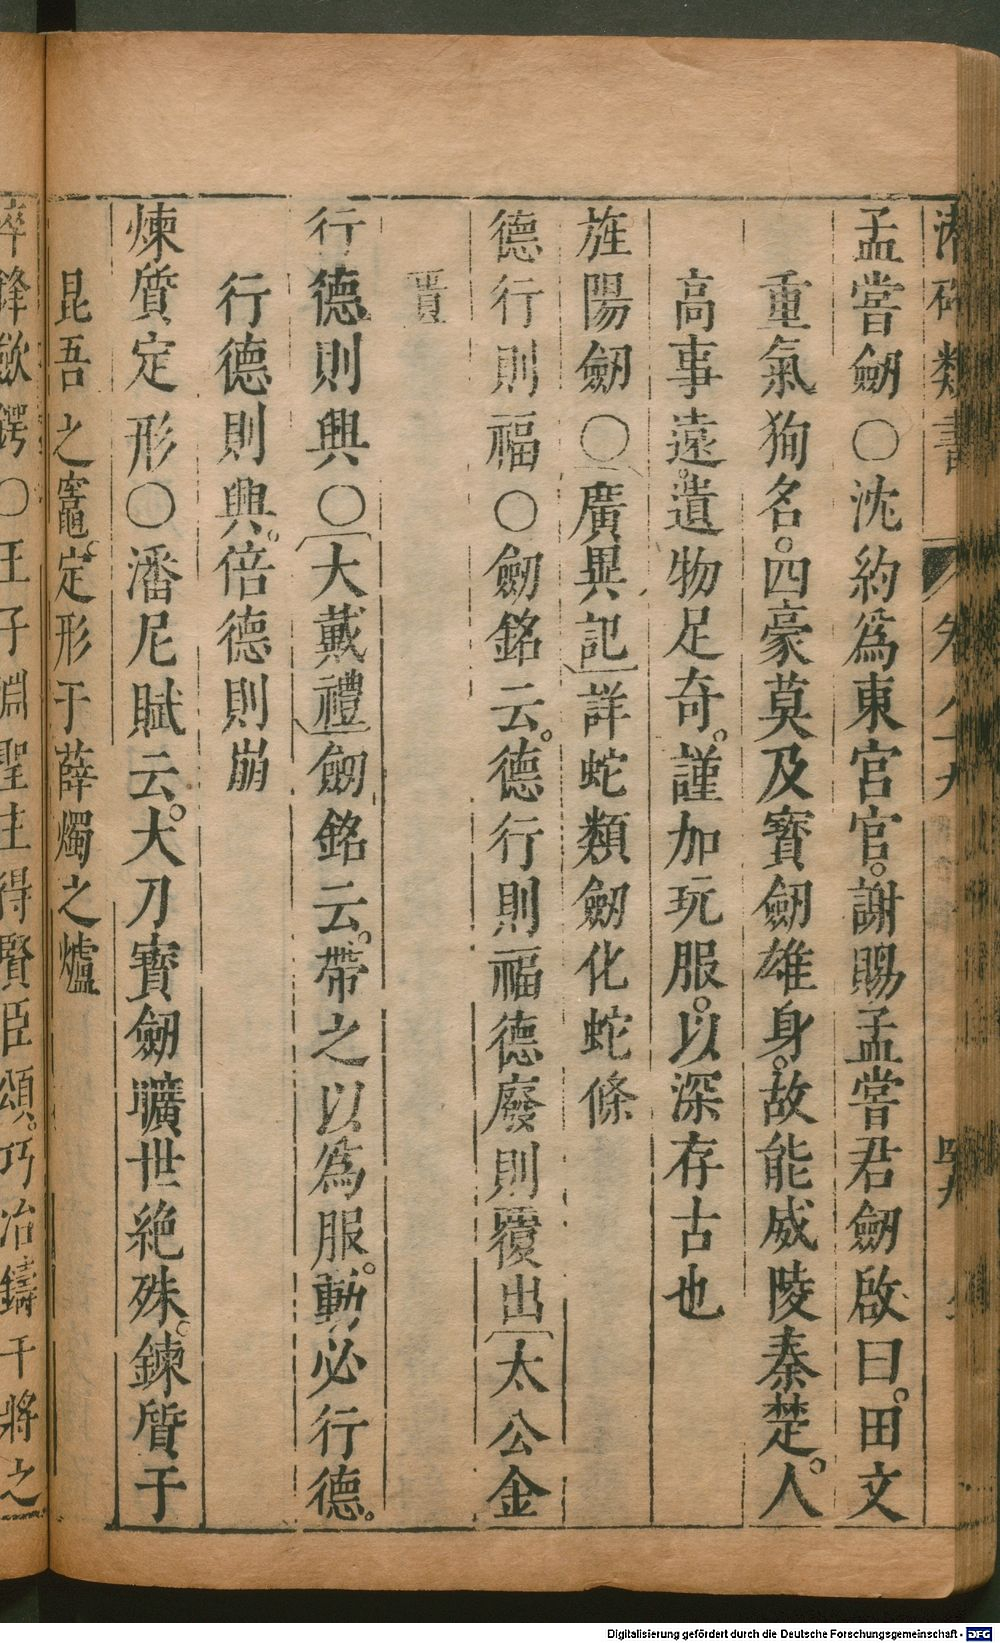 潛確類書
孟嘗劒○沈約爲東宮官。謝賜孟嘗君劒啟曰。田文
重氣狥名。四豪莫及寳劒雄身。故能威陵秦楚。人
高事遠。遺物足奇。謹加玩服。以深存古也
旌陽劒○廣異記詳蛇類劒化蛇條
德行則福○劒銘云。德行則福德廢則覆出太公金
匱
行德則興○大戴禮劒銘云。帶之以爲服。動必行德。
行德則興。倍德則崩
煉質定形○潘尼賦云。大刀寳劒曠世絶殊。鍊質于
昆吾之竈。定形于薛燭之爐
淬鋒歛鍔○王子淵聖主得賢臣頌。巧冶鑄干將之
Digitalisierung gefördert durch die Deutsche Forschungsgemeinschaft - DFG